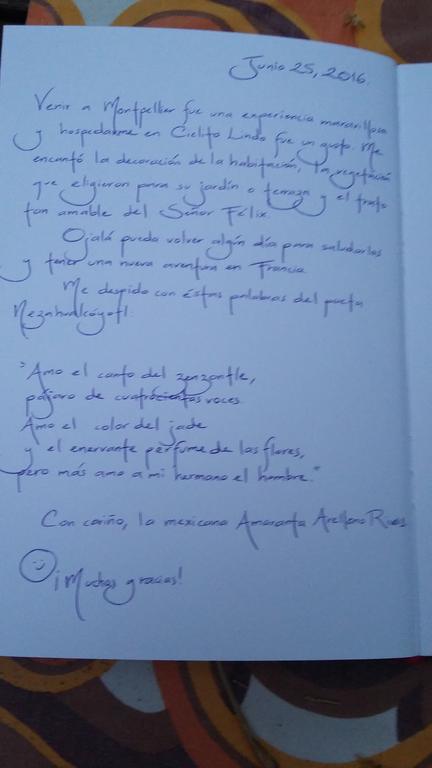 Junio 25, 2016.
Venir a Montpellier fue una experiencia maravillosa
y hospedarme en Cielito Lindo fue un gusto. Me
encantó la decoración de la habitación, la vegetación
que eligieron para su jardín o terraza y el trato
tan amable del Señor Félix.
Ojalá pueda volver algún día para saludarlos
y tener una nueva aventura en Francia.
Me despido con éstas palabras del poeta
Nezahualcóyotl:
"Amo el canto del zenzontle,
pájaro de cuatrocientas voces.
Amo el color del jade
y el enervante perfume de las flores,
pero más amo a mi hermano el hombre."
Con cariño, la mexicana Amaranta Arellano
¡Muchas gracias!